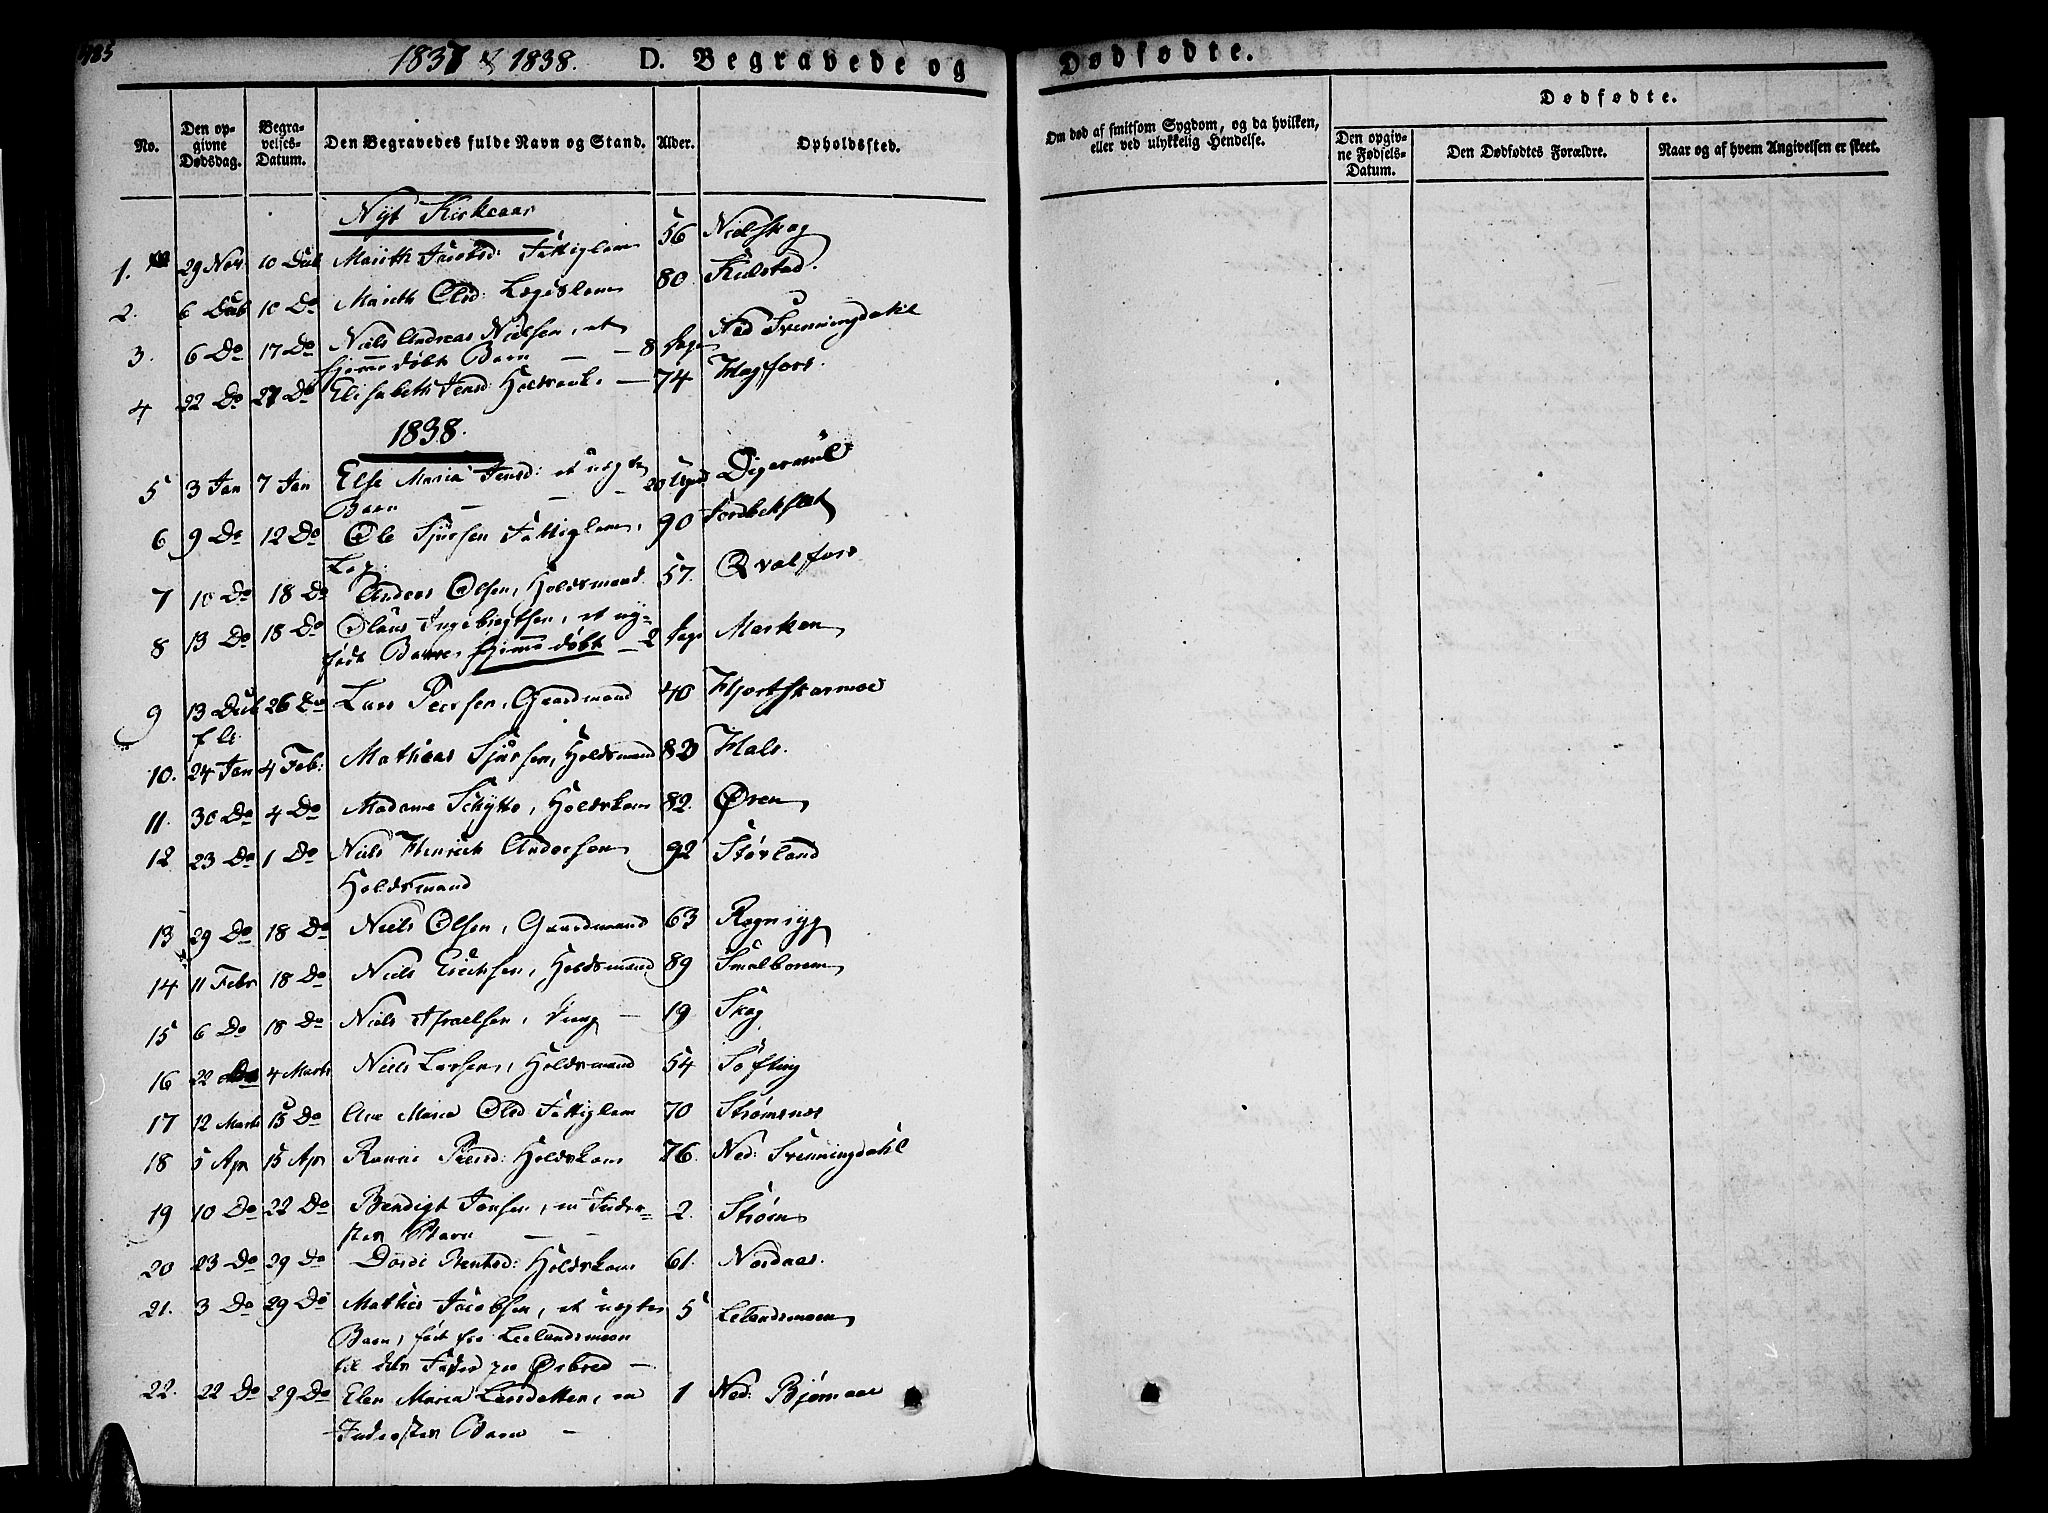 485
1837 & 1838. D. Begravede og Dødfødte.
No. Den opgivne Dødsdag. Begravelses-Datum. Den Begravedes fulde Navn og Stand. Alder. Opholdssted. Om død af smitsom Sygdom, og da hvilken, eller ved ulykkelig Hendelse. Dødfødte. Den opgivne Fødsels-Datum. Den Dødfødtes Forældre. Naar og af hvem Angivelsen er skeet.
Nyt Kirkeaar
1. 29 Nov. 10 Deb Mareth Jacobsd: Fattiglem 56 Nielskog
2. 6 Deb 10 Do Mareth Olsd: Lægdslem 80 Kulstad.
3. 6 Do 17 Do Niels Andreas Nielsen, et
hjemmedøbt Barn — — 8 Dage Ned Svenningdahl
4 22 Do 27 Do Elisabeth Jensd: Holdsenk. — 74 Hagfors.
1838.
5 3 Jan 7 Jan Else Maria Jensd: et uægte
Barn — — 20 Uger Digermul
6 9 Do 12 Do Ole Sjursen Fattiglem, 90 Fordbekslet
Læg:
7 10 Do 18 Do Anders Olsen, Holdsmand 57. Qvalfors
8 13 Do 18 Do Olaus Ingebrigtsen, et ny-
født Barn, hjemmedøbt — 2 Dage Marken
9 13 Deb 26 Do Lars Peersen, Gaardmand 40 Hjortskarmoe
f. A:
10. 24 Jan 4 Feb: Mathias Sjursen, Holdsmand 82 Hals.
11. 30 Do 4 Do Madame Schytte, Holdskone 82. Øren
12 23 Do 1 Do Niels Henrich Andersen 92 Størland
Holdsmand
13 29 Do 18 Do Niels Olsen, Gaardmand 63 Rognryg
14 11 Febr 18 Do Niels Erichsen, Holdsmand 89 Smalboren
15 6 Do 18 Do Niels Israelsen, Dreng — 19 Skog
16 22 Do 4 Marts Niels Larsen, Holdsmand 54 Søfting
17 12 Marts 15 Do Ane Maria Olsd Fattiglem 70 Strømnes
18 5 Apr 15 Apr Ranni Peersd: Holdskone 76. Ned: Svenningdahl
19 10 Do 22 Do Bendigt Jonsen, en Inder-
stes Barn — — 2. Strøm
20 23 Do 29 Do Dordi Bentsd: Holdskone 61. Nordaas.
21. 3 Do 29 Do Mathis Jacobsen, et uægte 5 Lelandsmoen
Barn, født fra Leelandsmoen
til dets Fader paa Ørbred —
22. 22 Do 29 Do Elen Maria Larsdatter, en 1 Ned: Bjørnaae
Inderstes Barn —